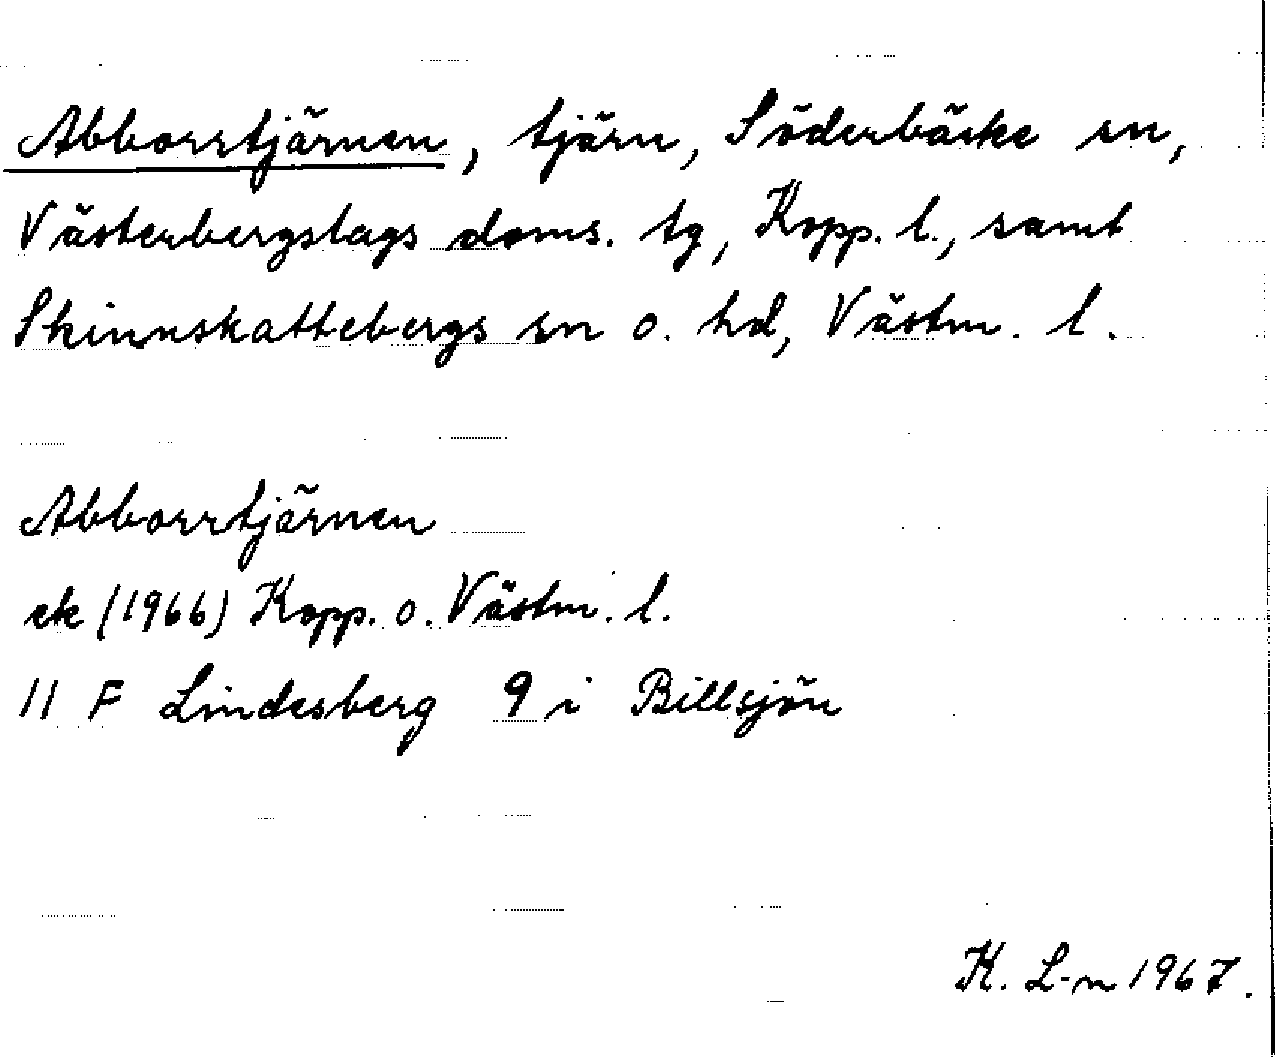 Abborrtjärnen, tjärn, Söderbärke sn,
Västerbergslags doms. tg, Kopp. l., samt
Skinnskattebergs sn o. hd, Västm. l.
Abborrtjärnen
ek (1966) Kopp. o. Västm. l.
11 F Lindesberg 9 i Billsjön
K. L-n 1967.